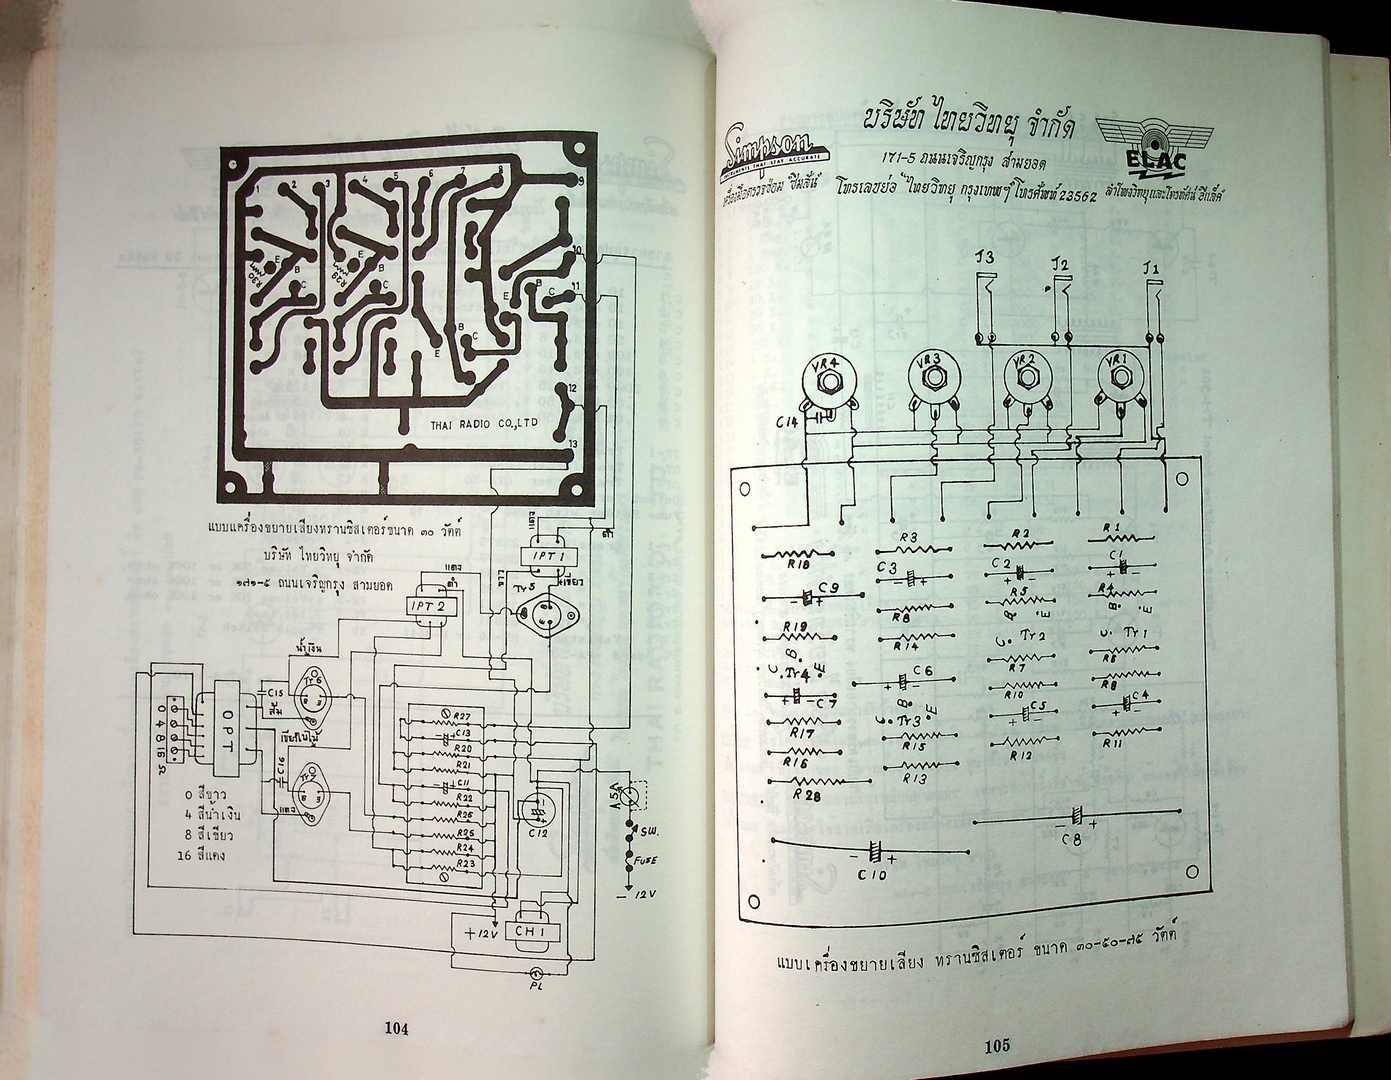 1
2
3
4
5
6
7
8
9
10
11
12
13
E
B
C
R30
E
B
C
R29
E
B
C
E
B
C
THAI RADIO CO.,LTD
แบบเครื่องขยายเสียงทรานซิสเตอร์ขนาด ๓๐ วัตต์
บริษัท ไทยวิทยุ จำกัด
๑๗๑-๕ ถนนเจริญกรุง สามยอด
แดง
ดำ
IPT 1
ขาว
เขียว
Tr 5
แดง
ดำ
IPT 2
น้ำเงิน
Tr 6
C15
ส้ม
OPT
0 4 8 16 Ω
เขียวใบไม้
C16
Tr 7
แดง
0 สีขาว
4 สีน้ำเงิน
8 สีเขียว
16 สีแดง
R27
C13
R20
R21
C11
R22
R26
R25
R24
R23
C12
5A
SW.
FUSE
- 12V
+12V
CH 1
PL
104
Simpson
INSTRUMENTS THAT STAY ACCURATE
บริษัท ไทยวิทยุ จำกัด
171-5 ถนนเจริญกรุง สามยอด
ELAC
เครื่องมือตรวจซ่อม ซิมสัน
โทรเลขย่อ "ไทยวิทยุ กรุงเทพฯ" โทรศัพท์ 23562
ลำโพงวิทยุและโทรทัศน์ อีแล็ค
J3
J2
J1
VR4
VR3
VR2
VR1
C14
R18
R3
R2
R1
C9
C3
C2
C1
R8
R5
R4
B
E
B
E
R19
R14
C
Tr2
C
Tr1
B
C
E
Tr4
C6
R7
R6
C7
R10
R8
B
C
E
Tr3
C5
C4
R17
R15
R12
R11
R16
R13
R28
C8
C10
แบบเครื่องขยายเสียง ทรานซิสเตอร์ ขนาด ๓๐-๕๐-๗๕ วัตต์
105